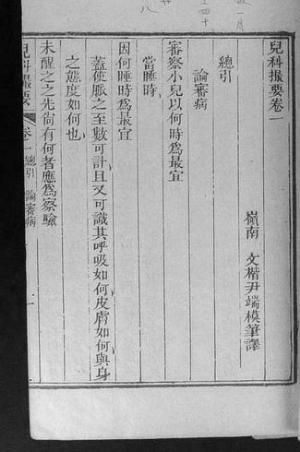 兒科撮要卷一
嶺南 文楷尹端模筆譯
總引
論審病
審察小兒以何時爲最宜
當睡時
因何睡時爲最宜
蓋使脈之至數可計且又可識其呼吸如何皮膚如何與身
之態度如何也
未醒之之先尙有何者應爲察驗
兒科撮要
卷一 總引 論審病